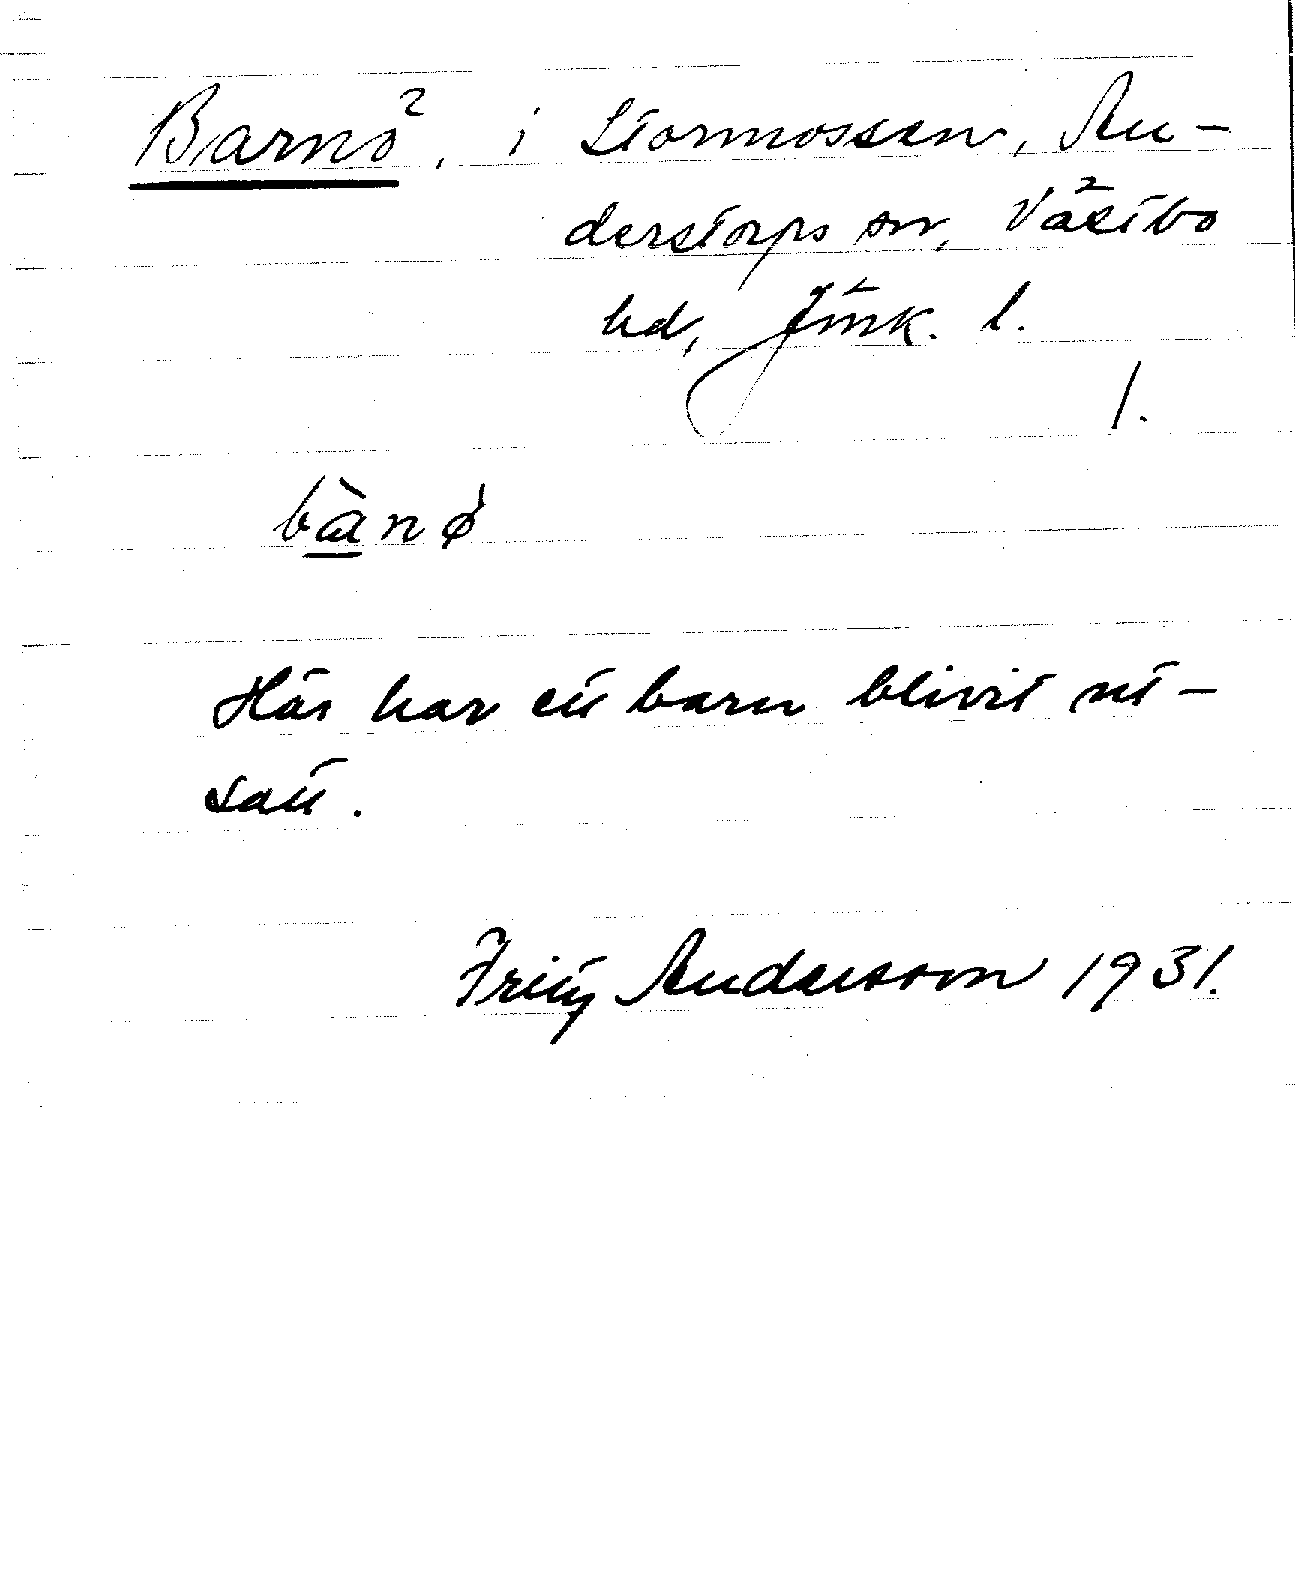 Barnö, i Stormossen, An-
derstorps sn, Västbo
hd, Jönk. l.
1.
bànǿ
Här har ett barn blivit ut-
satt.
Fritz Andersson 1931.